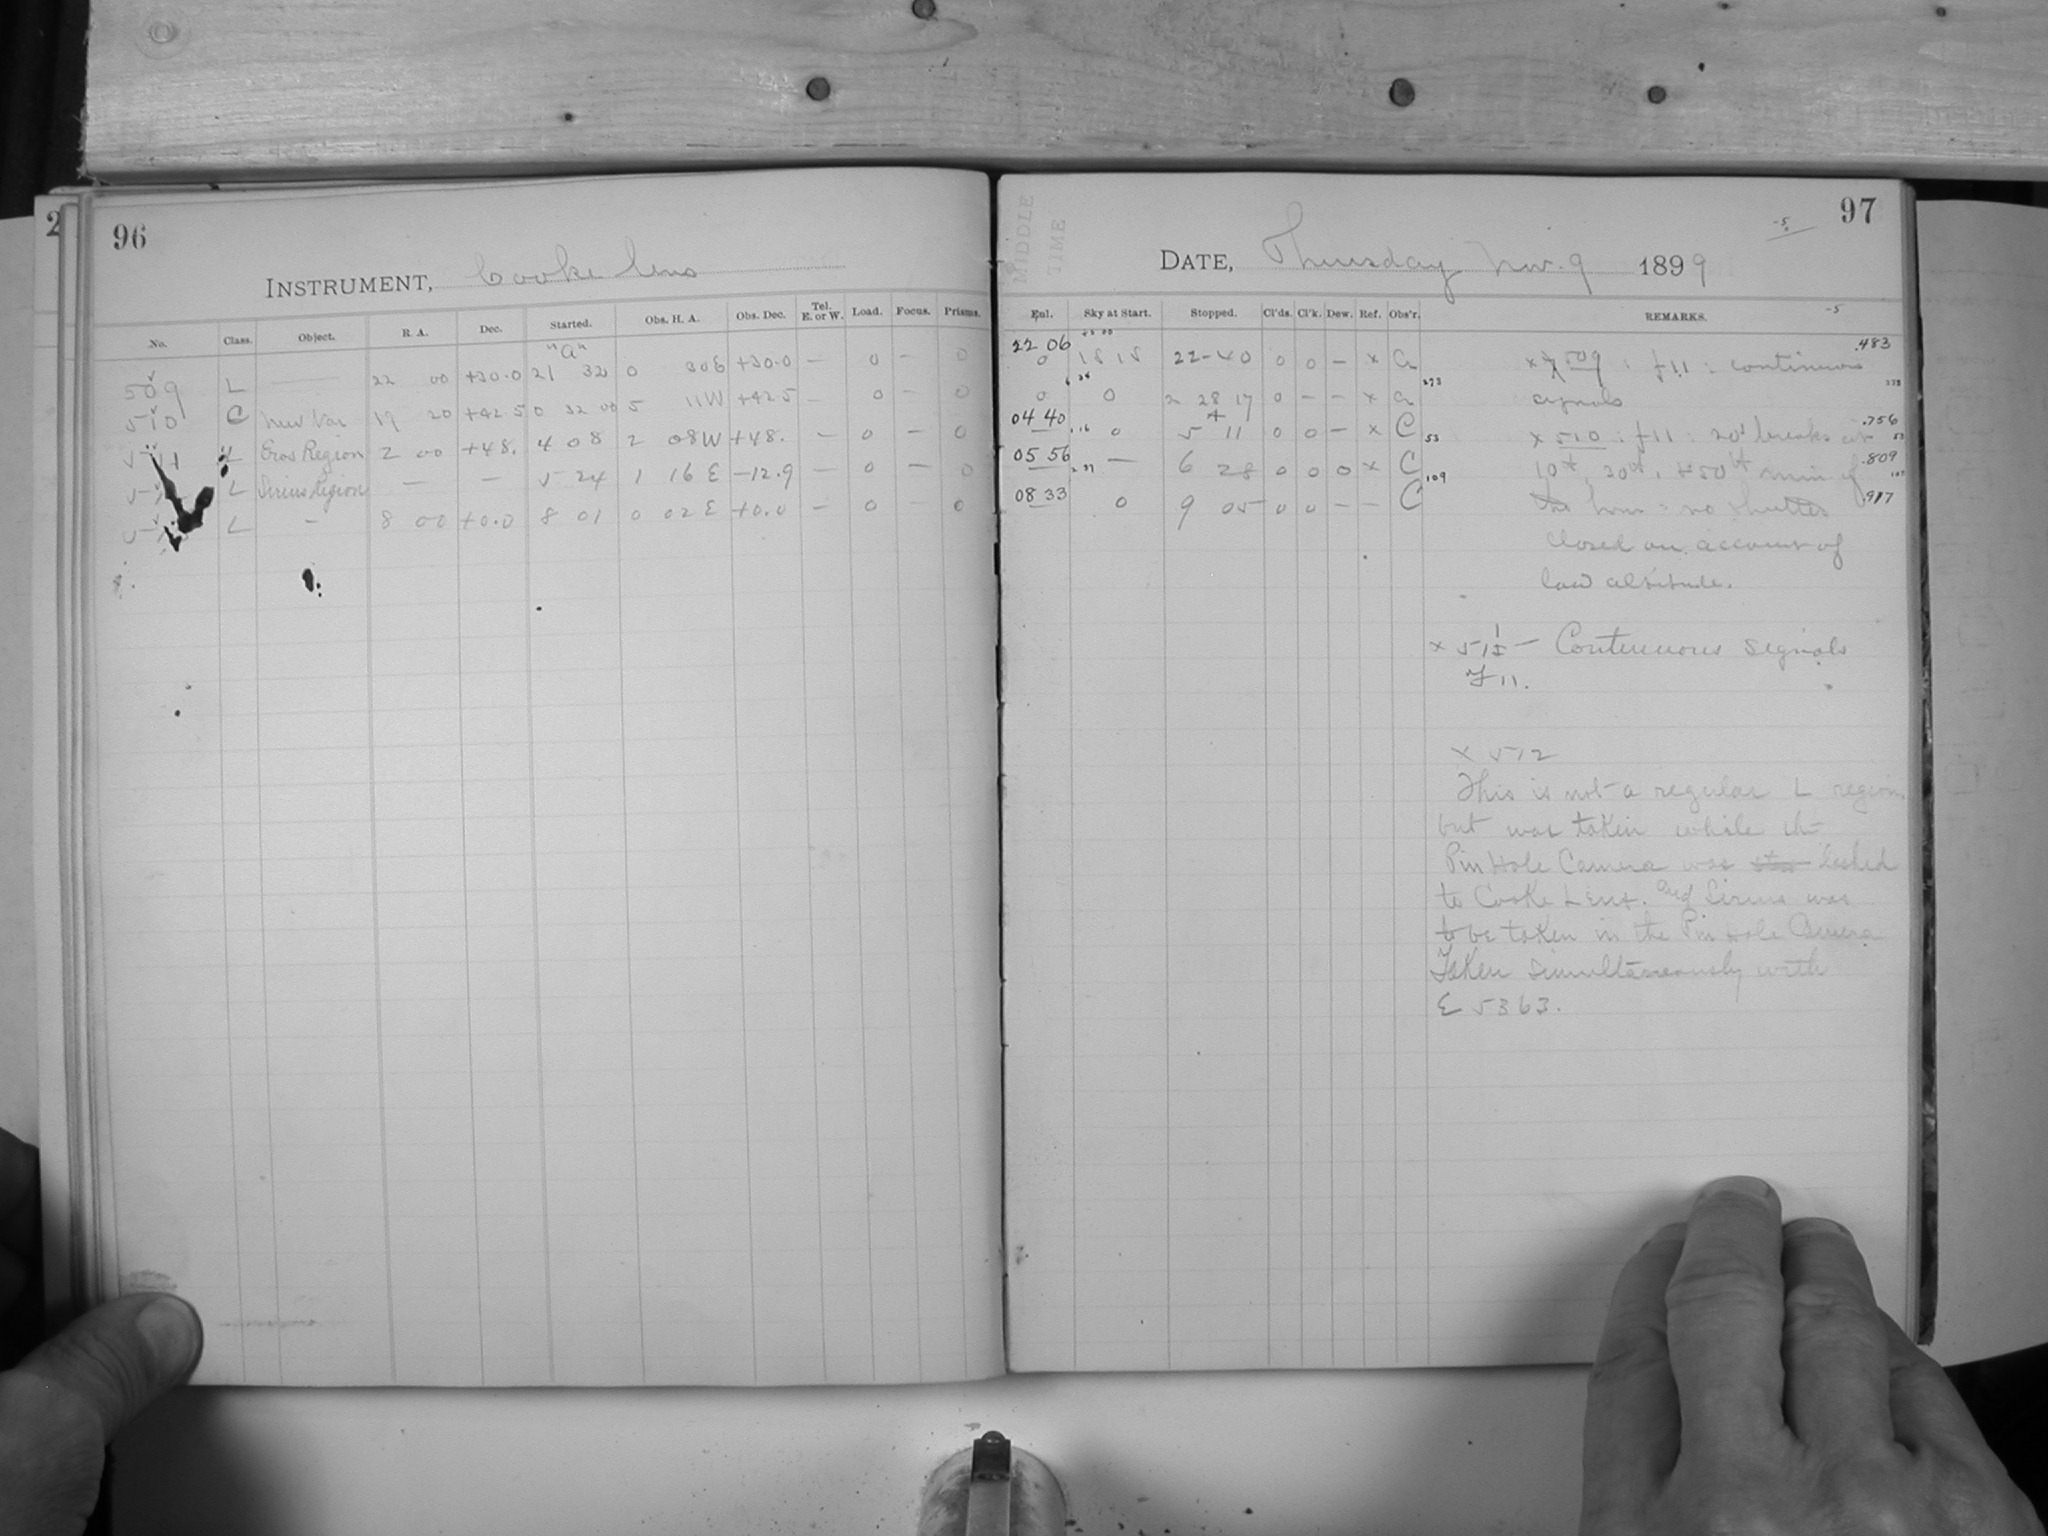 2
96
INSTRUMENT, Cooke Lens
No. Class. Object. R. A. Dec. Started. Obs. H. A. Obs. Dec. Tel. E. or W. Load. Focus. Prisms.
"a"
509 L — 22 00 +30.0 21 32 0 30E +30.0 — 0 — 0
510 C New Var 19 20 +42.5 0 32 00 5 11W +42.5 — 0 — 0
511 L Eros Region 2 00 +48. 4 08 2 08W +48. — 0 — 0
L Sirius Region — — 5 24 1 16 E −12.9 — 0 — 0
L — 8 00 +0.0 8 01 0 02 E +0.0 — 0 — 0
MIDDLE
TIME
97
-5
DATE, Thursday Nov. 9 1899
Eul. Sky at Start. Stopped. Cl'ds. Cl'k. Dew. Ref. Obs'r. REMARKS.
-5
22 06
0 18 18 22-40 0 0 — x
0 0 28 17 0 — — x
04 40 0 5 11 0 0 — x C 53
05 56 — 6 28 0 0 0 x C 109
08 33 0 9 05 0 0 — — C
.483
x 509 : f11 : continuous
signals
.756
x 510 : f11 : 20s breaks at
.809
10th, 30th, & 50th min of
.917
the hour : no shutter
closed on account of
low altitude.
x 511 — Continuous signals
F 11.
x 512
This is not a regular L region,
but was taken while the
Pin Hole Camera was lashed
to Cooke Lens. and Sirius was
to be taken in the Pin Hole Camera
Taken simultaneously with
E 5363.